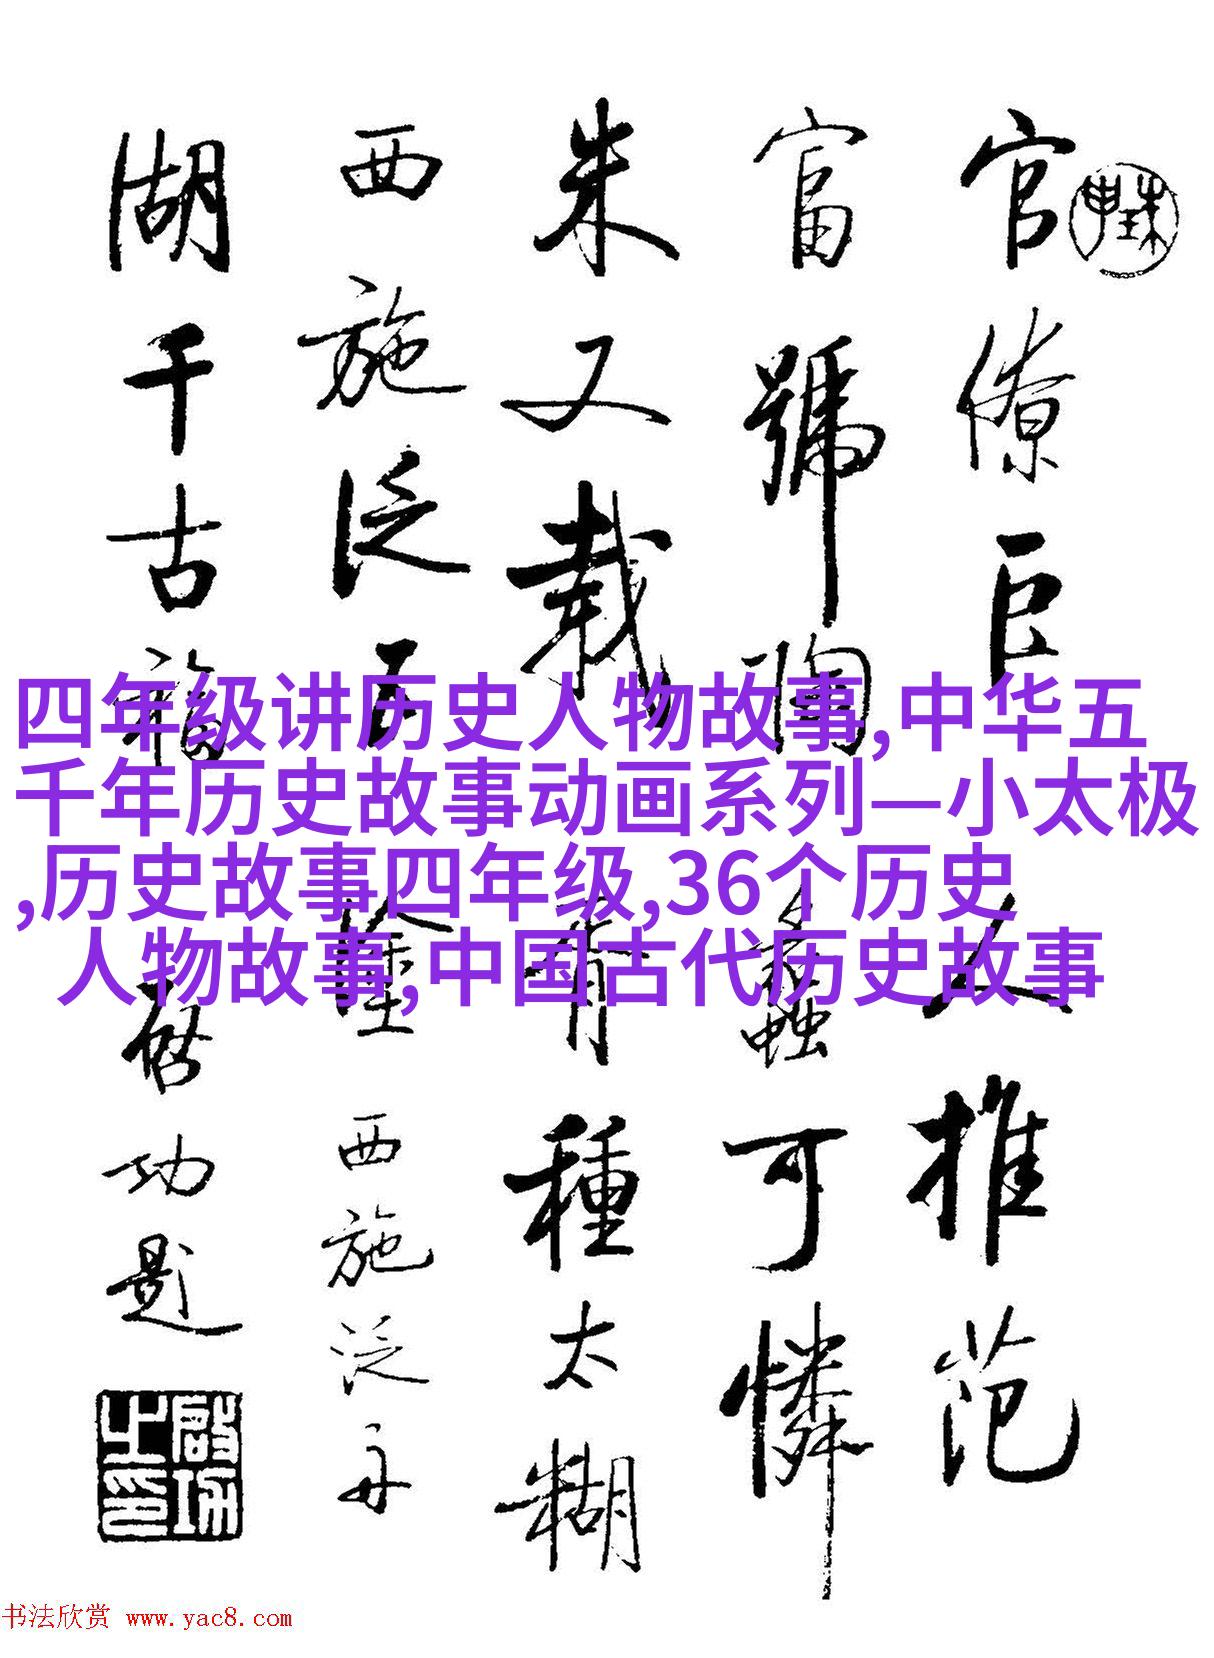 官僚巨人推范
富號陶蠡可憐
朱又載胥種太糊
西施泛五塗 西施泛舟
湖千古福 啓功題
四年级讲历史人物故事,中华五
千年历史故事动画系列—小太极
,历史故事四年级,36个历史
人物故事,中国古代历史故事
书法欣赏 www.yac8.com